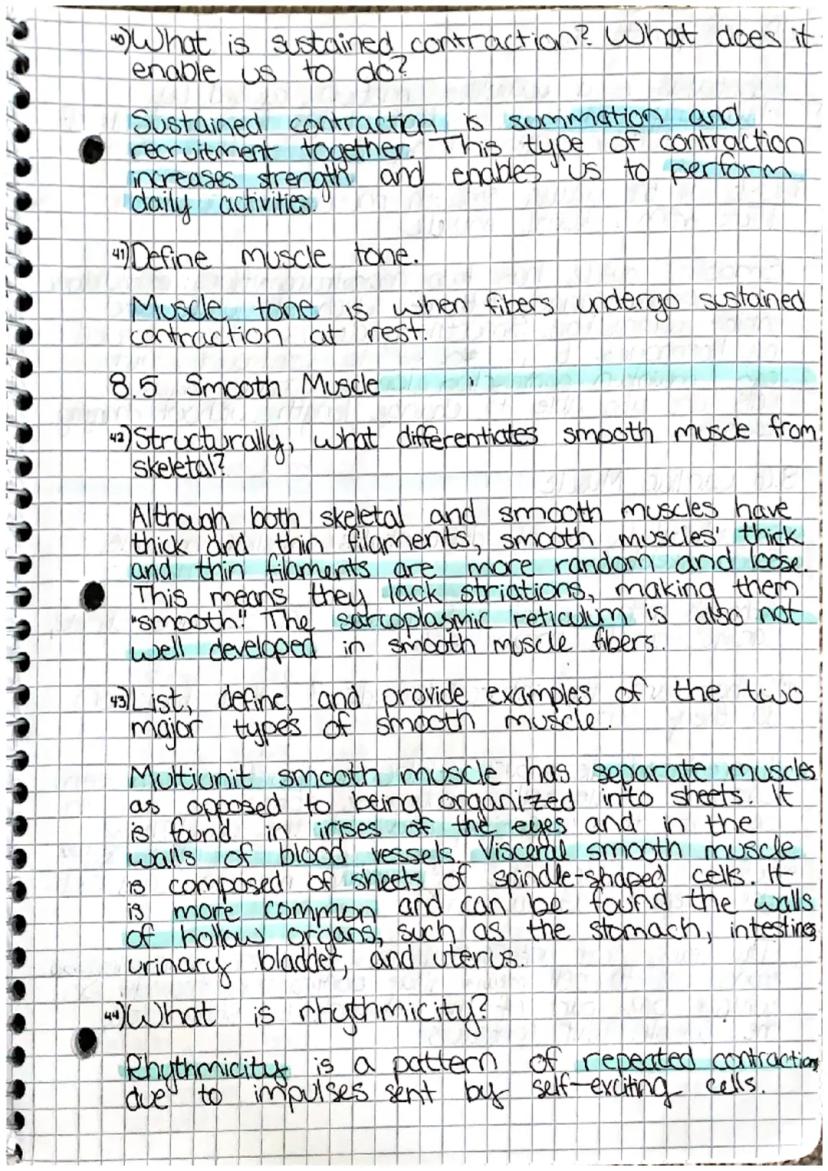 40) What is sustained contraction? What does it
enable us to do?
Sustained contraction is summation and
recruitment together. This type of contraction
increases strength and enables us to perform
daily activities.
41) Define muscle tone.
Muscle tone is when fibers undergo sustained
contraction at rest.
8.5 Smooth Muscle
42) Structurally, what differentiates smooth muscle from
skeletal?
Although both skeletal and smooth muscles have
thick and thin filaments, smooth muscles' thick
and thin filaments are more random and loose.
This means they lack striations, making them
"smooth." The sarcoplasmic reticulum is also not
well developed in smooth muscle fibers.
43) List, define, and provide examples of the two
major types of smooth muscle.
Multiunit smooth muscle has separate muscles
as opposed to being organized into sheets. It
is found in irises of the eyes and in the
walls of blood vessels. Visceral smooth muscle
is composed of sheets of spindle-shaped cells. It
is more common and can be found the walls
of hollow organs, such as the stomach, intestines,
urinary bladder, and uterus.
44) What is rhythmicity?
Rhythmicity is a pattern of repeated contraction
due to impulses sent by self-exciting cells.